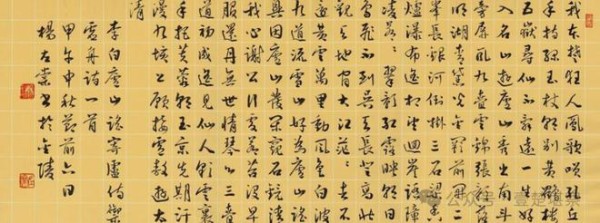 我本楚狂人鳳歌笑孔丘
手持綠玉杖朝別黃鶴樓
五嶽尋仙不辭遠一生好
入名山遊廬山秀出南斗
旁屏風九疊雲錦張影落
明湖青黛光金闕前開二
峯長銀河倒掛三石梁香爐
瀑布遙相望迴崖沓嶂
凌蒼蒼翠影紅霞映朝日
鳥飛不到吳天長登高壯
觀天地間大江茫茫去不
還黃雲萬里動風色白波
九道流雪山好為廬山謠
興因廬山發閑窺石鏡清
我心謝公行處蒼苔沒早
服還丹無世情琴心三疊
道初成遙見仙人彩雲裏
手把芙蓉朝玉京先期汗
漫九垓上願接盧敖遊太
清
李白廬山謠寄盧侍御
虛舟詩一首
甲午中秋節前六日
楊左棠書於金陵
公众号